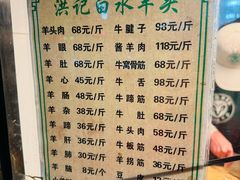 洪记白水羊头
羊头肉 68元/斤 牛腱子 98元/斤
羊眼 68元/斤 酱羊肉 118元/斤
羊肚 68元/斤 牛窝骨筋 68元/斤
羊心 45元/斤 牛舌 98元/斤
羊肠 48元/斤 牛蹄筋 48元/斤
羊杂 38元/斤 牛头肉 58元/斤
羊蹄 36元/斤 牛板筋 48元/斤
羊肝 36元/斤 羊拐筋 36元/斤
羊肺 30元/斤
羊脑 8元/个